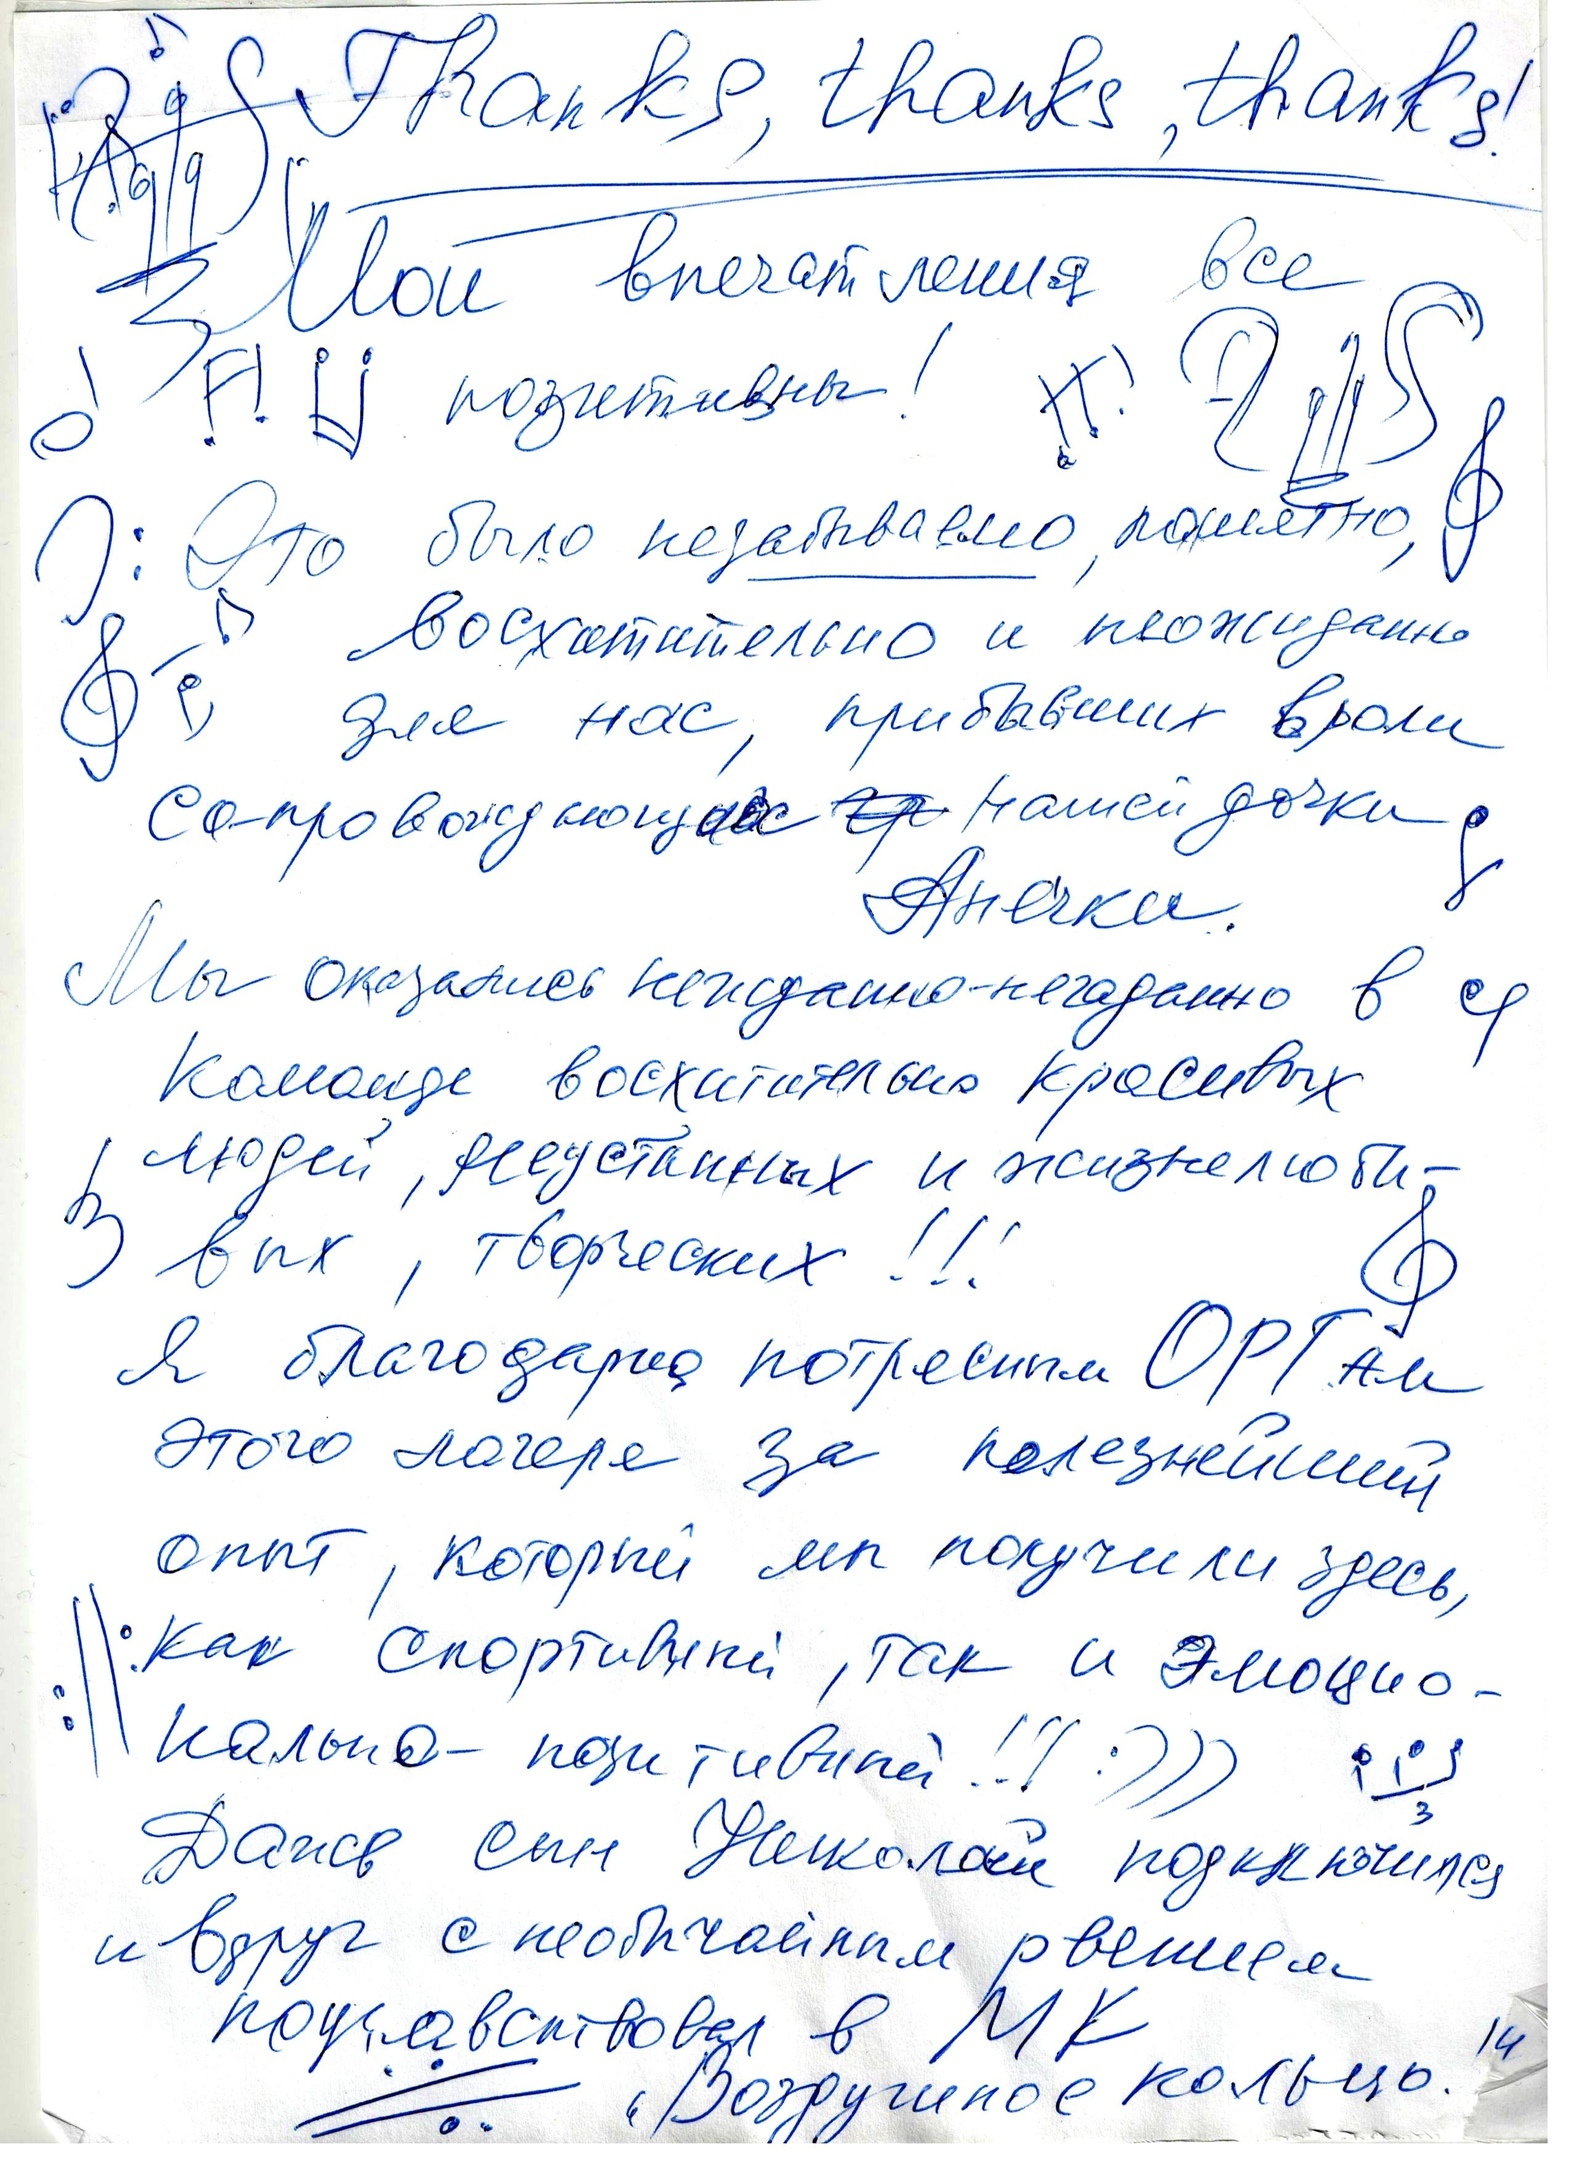 Thanks, thanks, thanks!
Мои впечатления все
позитивны!
Это было незабываемо, памятно,
восхитительно и неожиданно
для нас, прибывших в роли
сопровождающих нашей дочки
Анечки.
Мы оказались нежданно-негаданно в
команде восхитительно красивых
людей, неустанных и жизнелюби-
вых, творческих!!!
Я благодарю потрясным ОРГам
этого лагеря за полезнейший
опыт, который мы получили здесь,
как спортивный, так и эмоцио-
нально-позитивный!!! :)))
Даже сын Николай подключился
и вдруг с необычайным рвением
в МК
14
"Воздушное кольцо.